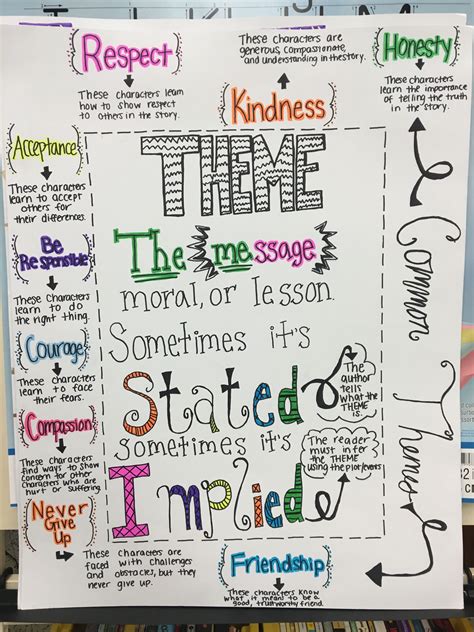 Respect
These characters learn
how to show respect
to others in the story.
These characters are
generous, compassionate,
and understanding in the story.
Kindness
Honesty
These characters
learn the importance
of telling the truth
in the story.
Acceptance
These characters
learn to accept
others for
their differences.
Be
Responsible
These characters
learn to do
the right thing.
Courage
These characters
learn to face
their fears.
Compassion
These characters
find ways to show
concern for other
characters who are
hurt or suffering.
Never
Give
Up
These characters are
faced with challenges
and obstacles, but they
never give up.
THEME
The message
moral, or lesson.
Sometimes it's
Stated
The
author
tells
what the
THEME
sometimes it's
The reader
must infer
the THEME
using the plot/events
Implied
Common Themes
Friendship
These characters know
what it means to be a
good, trustworthy friend.